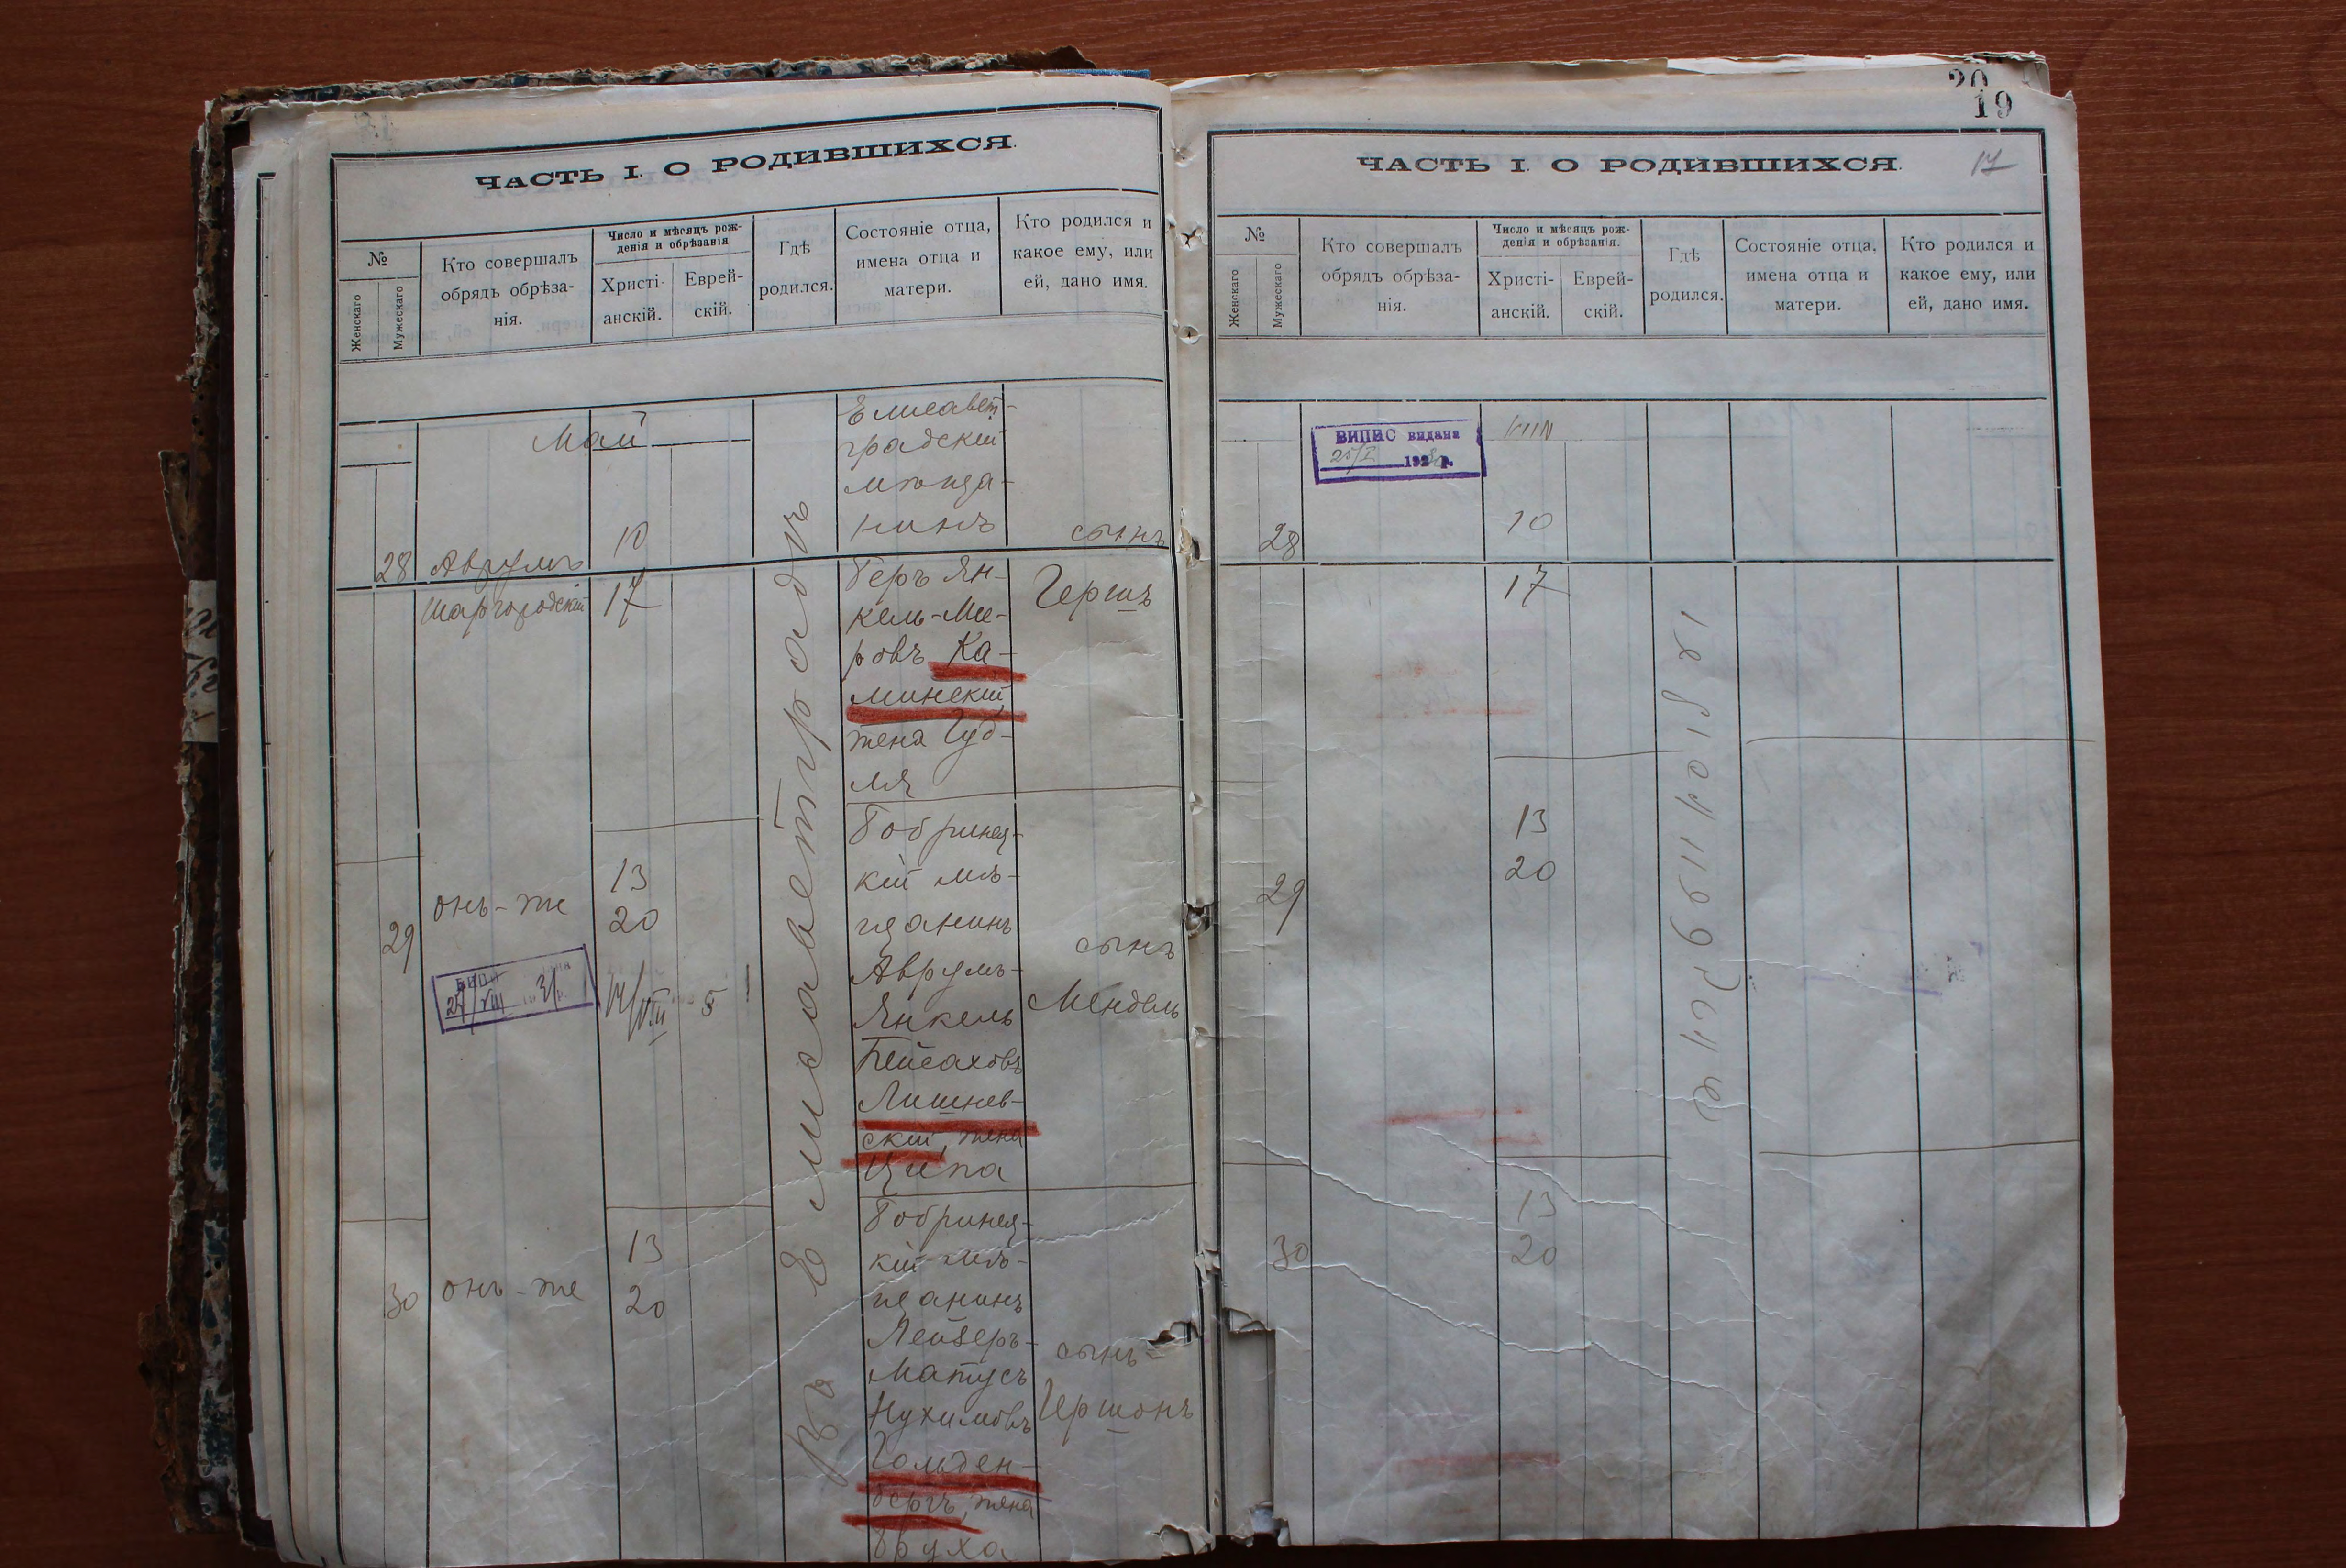 ЧАСТЬ I. О РОДИВШИХСЯ.
№
Женскаго
Мужескаго
Кто совершалъ
обрядъ обрѣза-
нія.
Число и мѣсяцъ рож-
денія и обрѣзанія
Христі-
анскій.
Еврей-
скій.
Гдѣ
родился.
Состояніе отца,
имена отца и
матери.
Кто родился и
какое ему, или
ей, дано имя.
Май
28
Аврумъ
Шаргородскій
10
17
Въ Елисаветградѣ
Елисавет-
градскій
мѣща-
нинъ
Беръ Ян-
кель-Ме-
ровъ Ка-
минскій,
жена Гуд-
ля
сынъ
Гершъ
29
онъ-же
13
20
27/VIII 31 р.
Бобринец-
кій мѣ-
щанинъ
Аврумъ-
Янкель
Пейсаховъ
Лишнев-
скій, жена
Ципа
сынъ
Мендель
30
онъ-же
13
20
Бобринец-
кій мѣ-
щанинъ
Лейзеръ-
Матусъ
Нухимовъ
Гольден-
бергъ, жена
Бруха
сынъ-
Гершонъ
20
19
17
ЧАСТЬ I. О РОДИВШИХСЯ.
№
Женскаго
Мужескаго
Кто совершалъ
обрядъ обрѣза-
нія.
Число и мѣсяцъ рож-
денія и обрѣзанія.
Христі-
анскій.
Еврей-
скій.
Гдѣ
родился.
Состояніе отца,
имена отца и
матери.
Кто родился и
какое ему, или
ей, дано имя.
ВИПИС видана
28
10
17
29
13
20
30
13
20